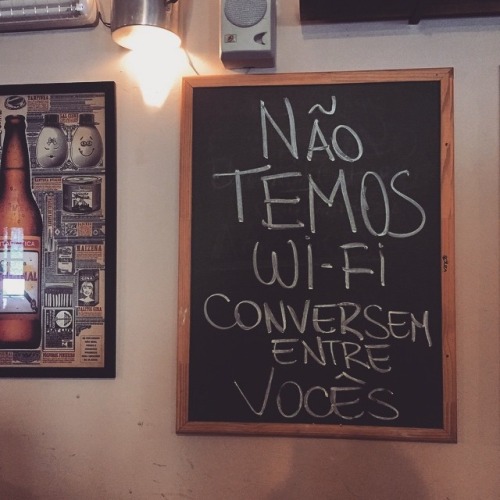 NÃO
TEMOS
WI-FI
CONVERSEM
ENTRE
VOCÊS